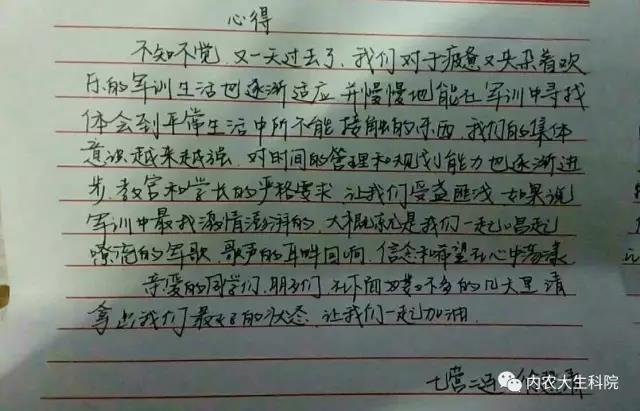 心得
不知不觉,又一天过去了,我们对于疲惫又夹杂着欢
乐的军训生活也逐渐适应,并慢慢地能在军训中寻找
体会到平常生活中所不能接触的东西,我们的集体
意识越来越强,对时间的管理和规划能力也逐渐进
步,教官和学长的严格要求,让我们受益匪浅,如果说
军训中最我激情澎湃的,大概就是我们一起唱起
嘹亮的军歌,歌声的耳畔回响,信念和希望在心中荡漾.
亲爱的同学们,朋友们,在下面为数不多的几天里,请
拿出我们最好的状态,让我们一起加油.
七营二连
内农大生科院